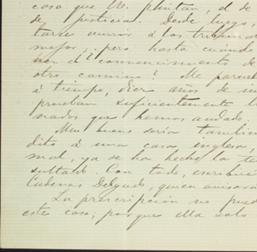 cosa que W. pintan, d de
de justicia. Desde luego,
tarse acurrir á los tribunal
mejor, pero hasta cuándo
d' convencimiento de
otro camino? Me parece
á tiempo, diez años de
prueban suficientemente l
rados que hemos andado.
Muy bueno seria tambien
dito á una casa inglesa,
mal, ya se ha hecho la te
sultado. Con todo, escribi
Cabenas Delgado, quien avisará
La prescripcion no pued
este caso, porque ella solo